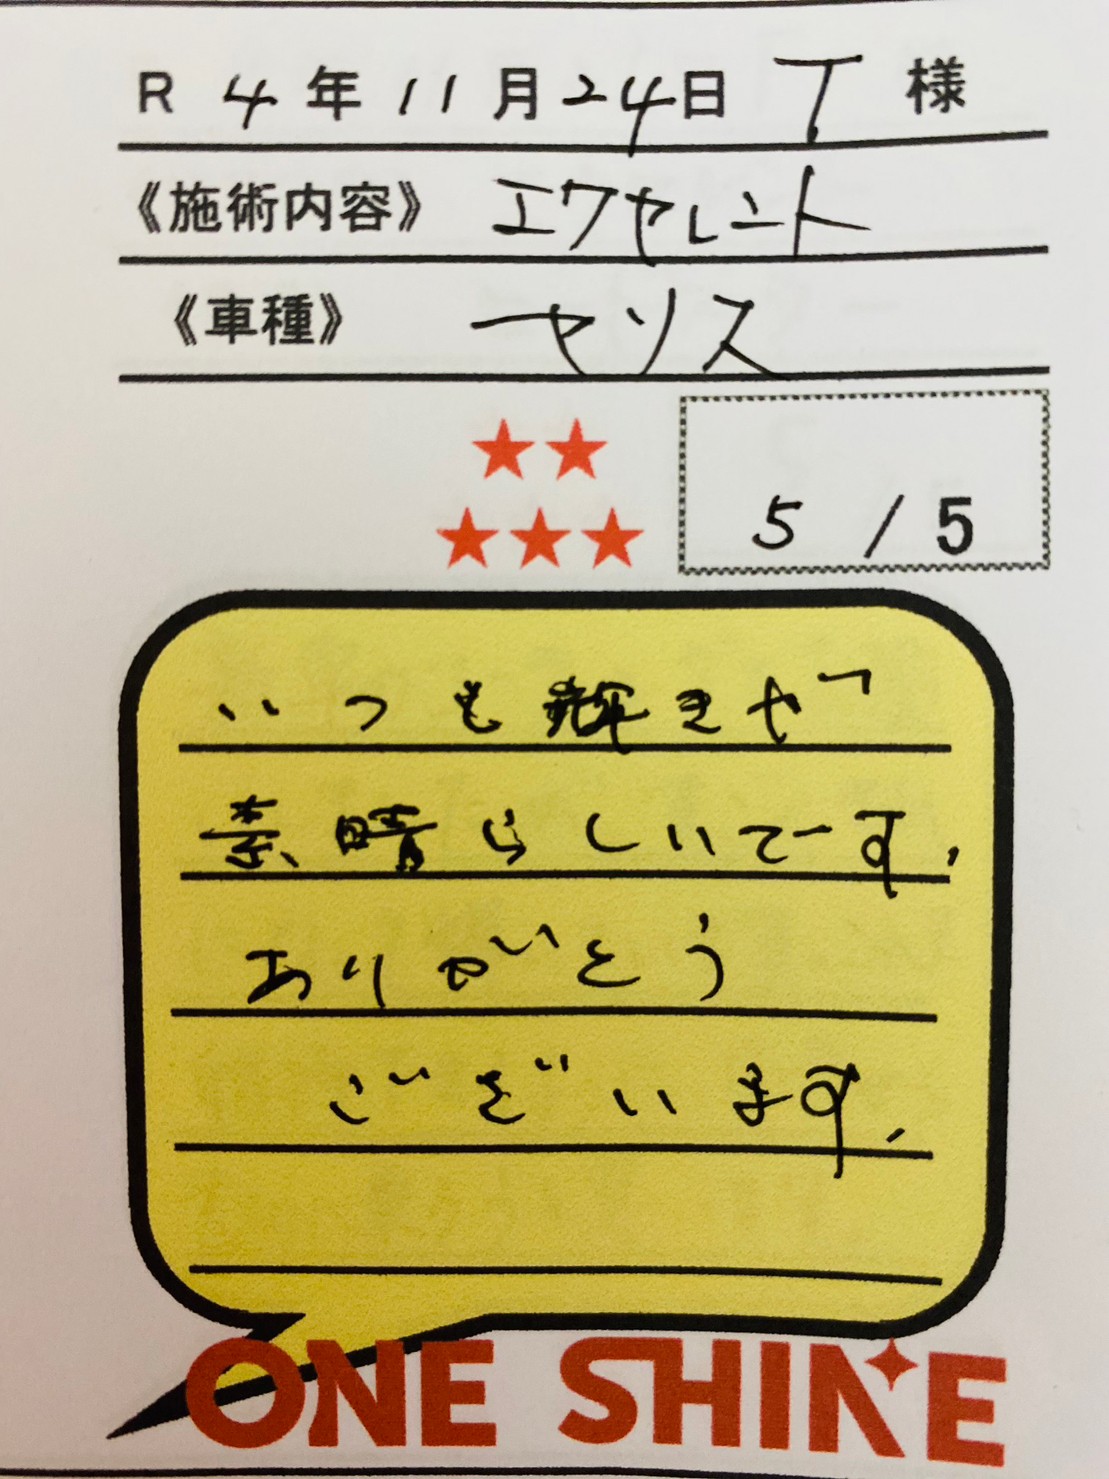 R 4年11月24日 T 様
《施術内容》 エクセレント
《車種》 セソス
5 / 5
いつも輝きが
素晴らしいです。
ありがとう
ございます。
ONE SHINE